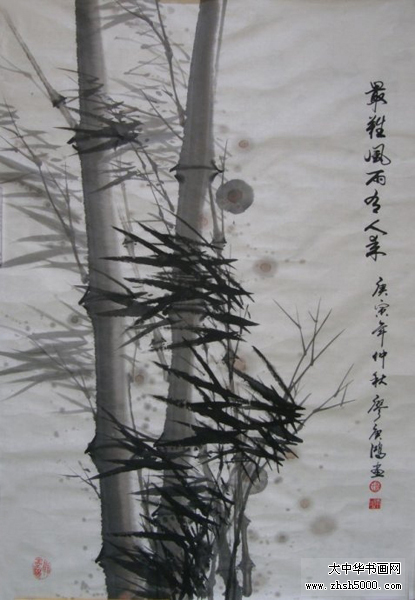 最難風雨故人來
庚寅年仲秋廖廣鴻畫
大中华书画网
www.zhsh5000.com